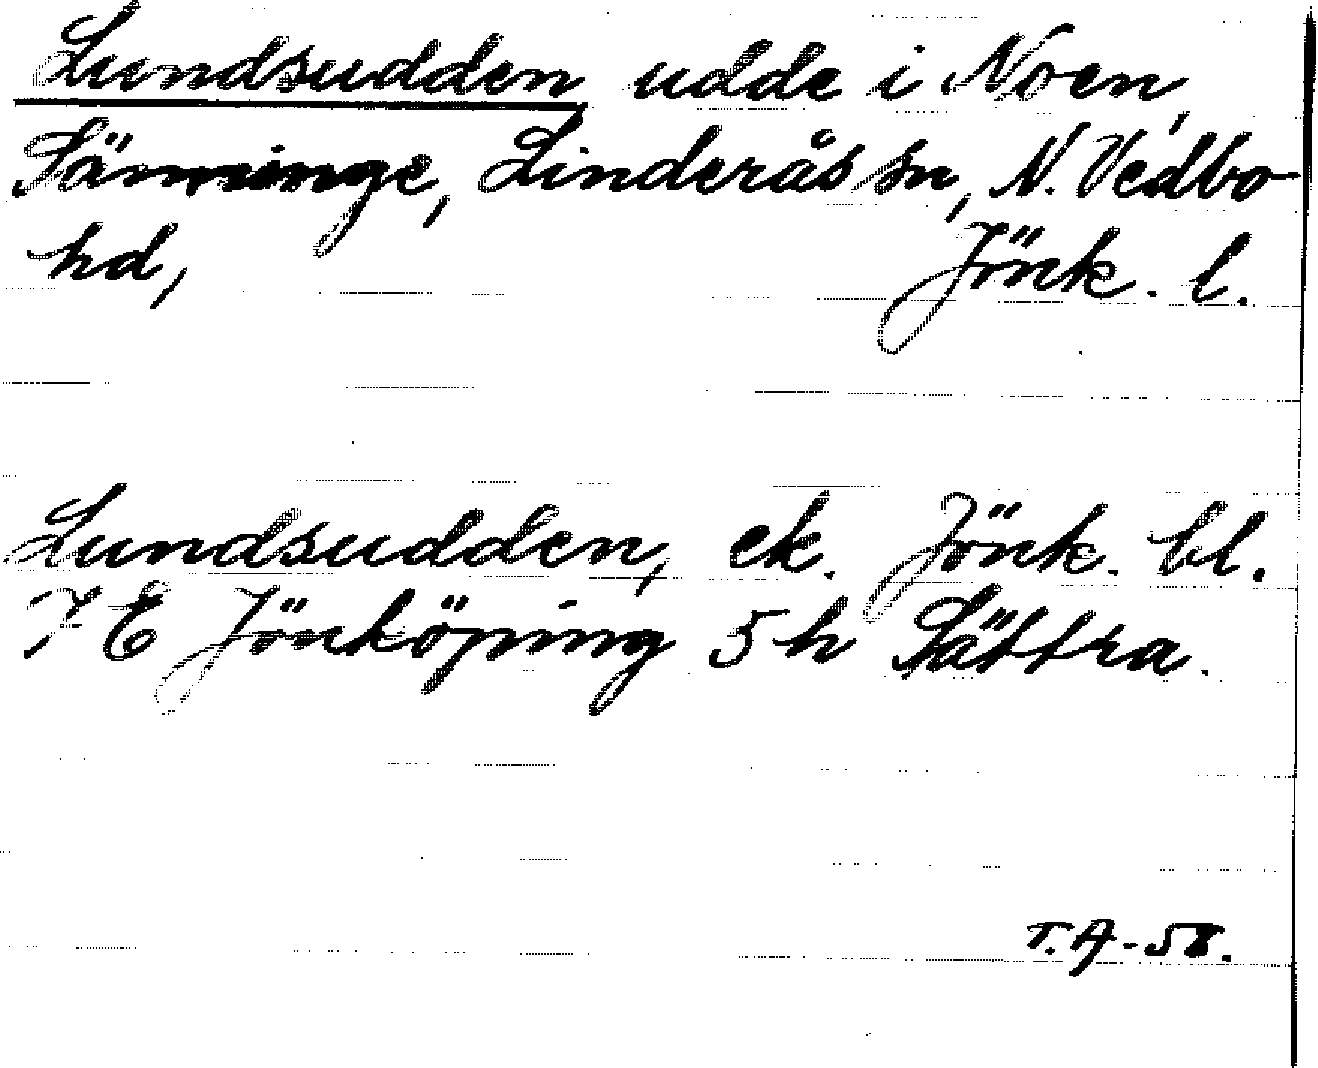 Lundsudden udde i Noen,
Sänninge, Linderås sn, N. Vedbo
hd, Jönk. l.
Lundsudden, ek. Jönk. bl.
7 E Jönköping 5 h Sättra.
T.A-58.